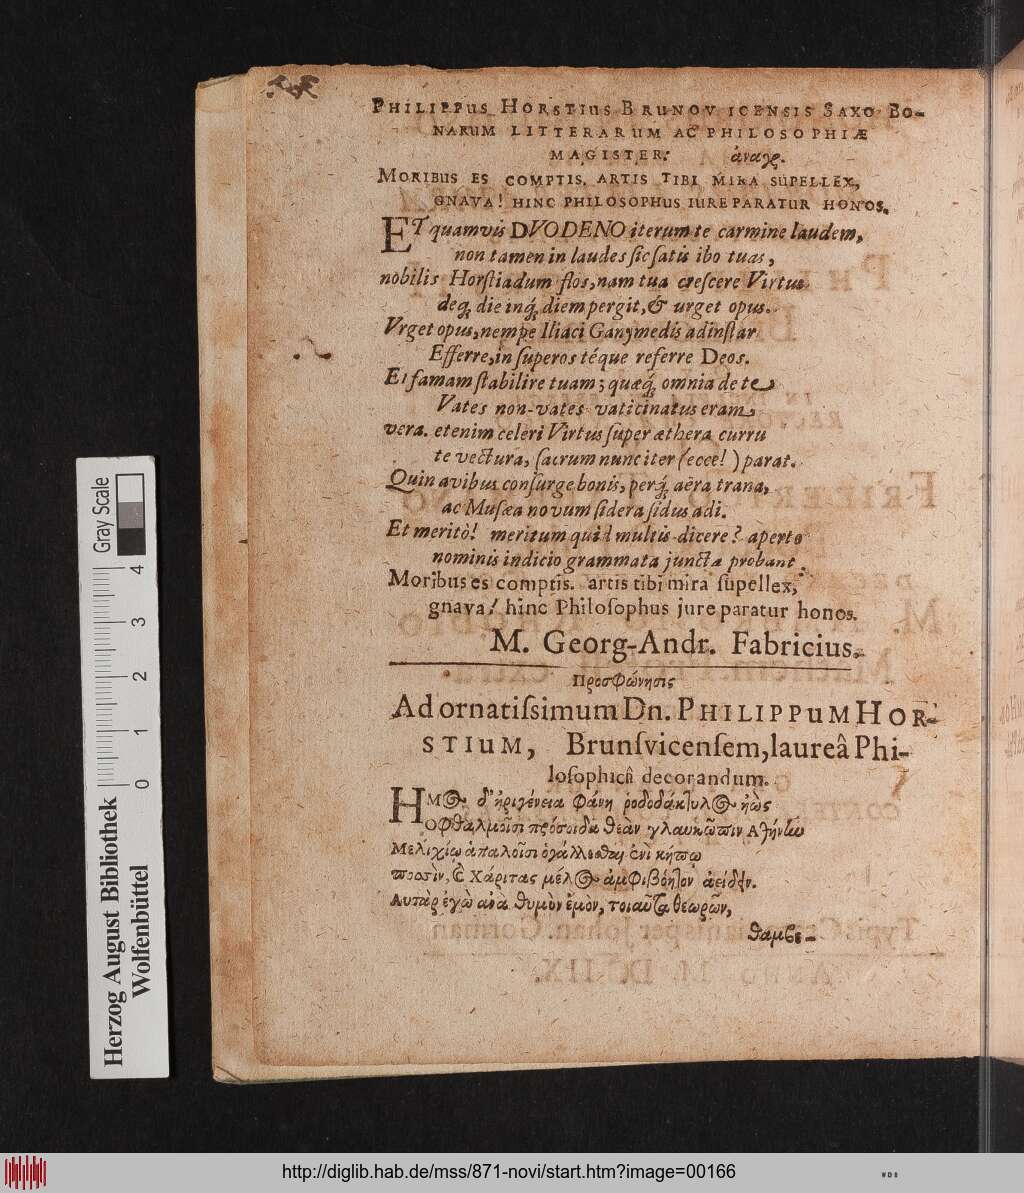 PHILIPPUS HORSTIUS BRUNOVICENSIS SAXO BO-
NARUM LITTERARUM AC PHILOSOPHIÆ
MAGISTER:
MORIBUS ES COMPTIS, ARTIS TIBI MIRA SUPELLEX,
GNAVA! HINC PHILOSOPHUS IURE PARATUR HONOS.
ET quamvis DVODENO iterum te carmine laudem,
non tamen in laudes sic satis ibo tuas,
nobilis Horstiadum flos, nam tua crescere Virtus
deq́; die inq́; diem pergit, & urget opus.
Vrget opus, nempe Iliaci Ganymedis ad instar
Efferre, in superos téque referre Deos.
Et famam stabilire tuam; quæq́; omnia de te
Vates non-vates vaticinatus eram,
vera. etenim celeri Virtus super æthera curru
te vectura, sacrum nunc iter (ecce!) parat.
Quin avibus consurge bonis, perq́; aëra trana,
ac Musæa novum sidera sidus adi.
Et meritò! meritum quid multis dicere? aperto
nominis indicio grammata juncta probant.
Moribus es comptis. artis tibi mira supellex,
gnava! hinc Philosophus jure paratur honos.
M. Georg-Andr. Fabricius.
Προσφώνησις
Ad ornatissimum Dn. PHILIPPUM HOR-
STIUM, Brunsvicensem, laureâ Phi-
losophicâ decorandum.
ΗΜος δ' ἠριγένεια φάνη ῥοδοδάκτυλος ἠὼς
Οφθαλμοῖσι πρόσοιδα θεὰν γλαυκῶπιν Αθήνην
Μειλιχίω ἁπαλοῖσι ἐνὶ κήπῳ
ποσσὶν, Ε Χάριτας μέλος ἀμφιβόητον ἀείδειν.
Αυτὰρ ἐγὼ ἀνα θυμὸν ἐμὸν, τοιαῦτα θεωρῶν,
θαμβε-
Gray Scale
0 1 2 3 4
Herzog August Bibliothek
Wolfenbüttel
http://diglib.hab.de/mss/871-novi/start.htm?image=00166